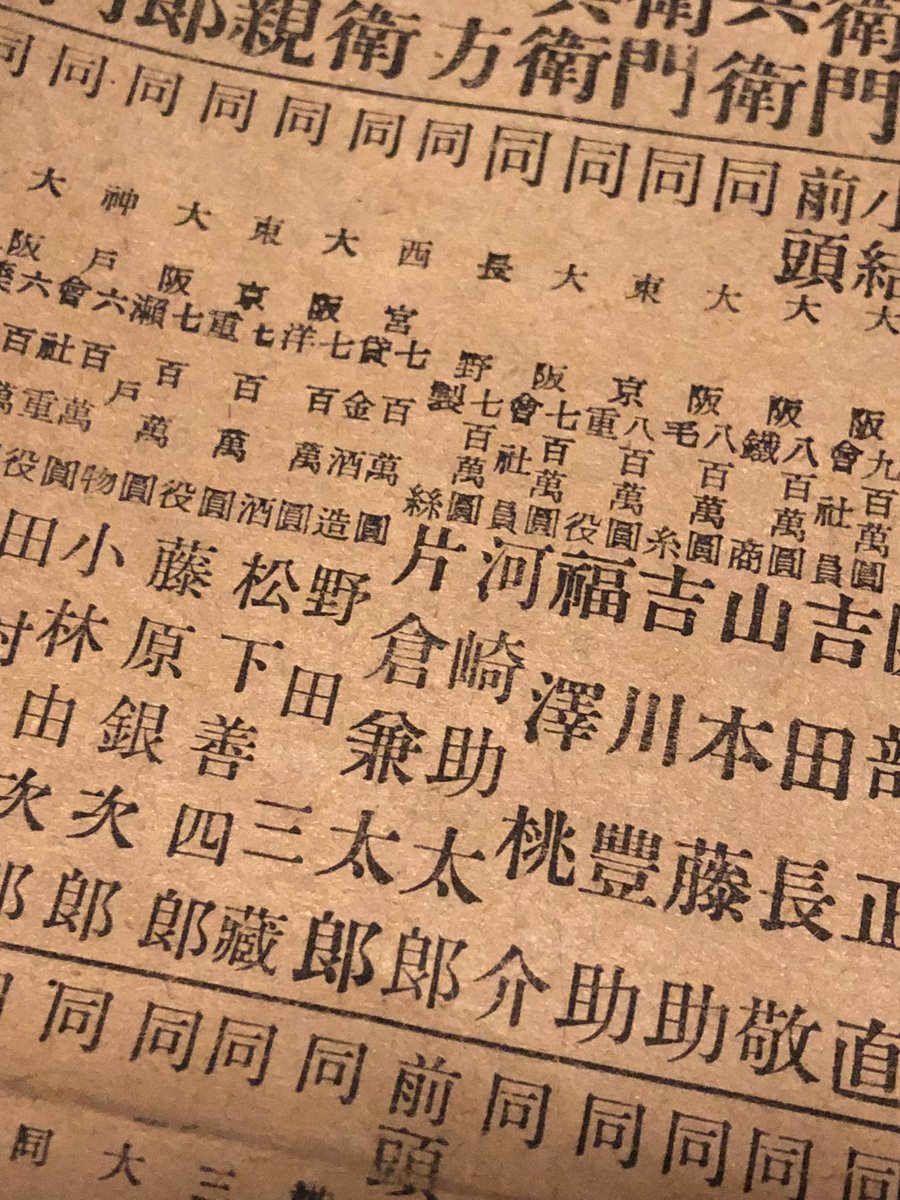 衛門
兵衛
衛門
兵衛
方
衛
親
郎
部正直
小結 大阪 會社員 九百萬圓 吉田長敬
前頭 大阪 鐵商 八百萬圓 山本藤助
同 大阪 毛糸 八百萬圓 吉川豐助
同 東京 重役 八百萬圓 福澤桃介
同 大阪 會社員 七百萬圓 河崎助太郎
同 長野 製絲 七百萬圓 片倉兼太郎
同 西宮 貸金酒造 七百萬圓 野田三藏
同 大阪 洋酒 七百萬圓 松下善四郎
同 東京 重役 七百萬圓 藤原銀次郎
同 大阪 瀬戸物 七百萬圓 小林由次郎
同 神戸 會社重役 六百萬圓 田村
同 大阪 六百萬
同
同
同
同
同
前頭
同 三
同 大
同
同